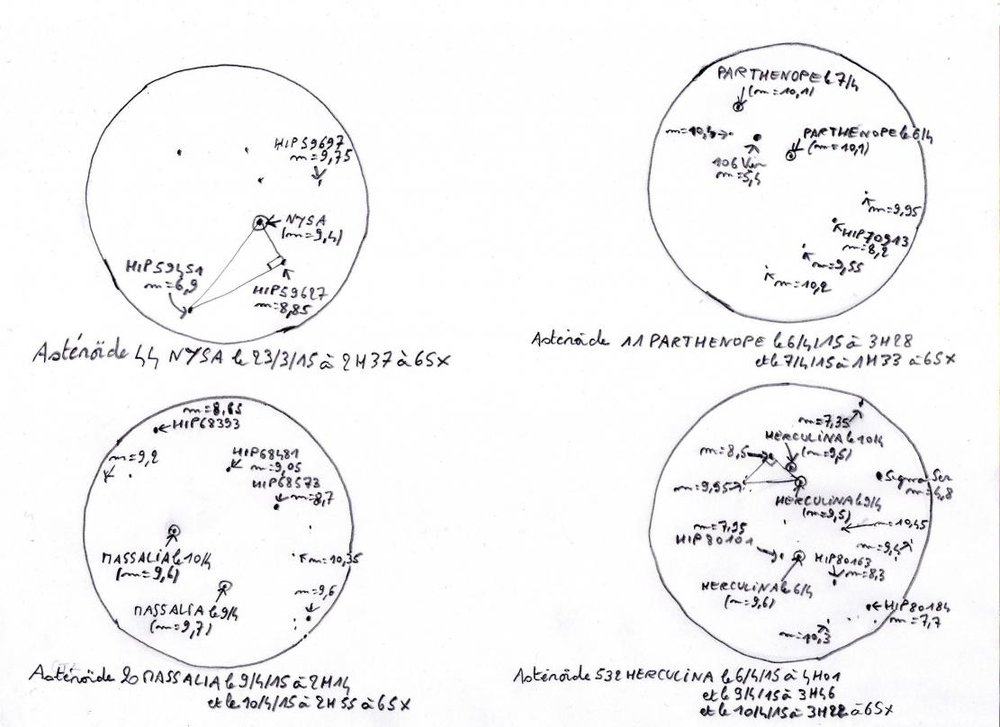 HIP59697
m=9,75
NYSA
(m=9,4)
HIP59451
m=6,9
HIP59627
m=8,85
Astéroïde 44 NYSA le 23/3/15 à 2H37 à 65X
PARTHENOPE le 7/4
(m=10,1)
m=10,4
PARTHENOPE le 6/4
(m=10,1)
106 Vir
m=5,4
m=9,95
HIP70913
m=8,2
m=9,55
m=10,2
Astéroïde 11 PARTHENOPE le 6/4/15 à 3H28
et le 7/4/15 à 1H33 à 65X
m=8,85
HIP68393
m=9,2
HIP68481
m=9,05
HIP68573
m=8,7
MASSALIA le 10/4
(m=9,6)
m=10,35
m=9,6
MASSALIA le 9/4
(m=9,7)
Astéroïde 20 MASSALIA le 9/4/15 à 2H14
et le 10/4/15 à 2H55 à 65X
m=7,35
HERCULINA le 10/4
(m=9,5)
m=8,5
Sigma Ser
m=4,8
m=9,95
HERCULINA le 9/4
(m=9,5)
m=10,45
m=7,95
HIP80101
m=9,4
HIP80163
m=8,3
HERCULINA le 6/4
(m=9,6)
HIP80184
m=7,7
m=10,3
Astéroïde 532 HERCULINA le 6/4/15 à 4H01
et le 9/4/15 à 3H46
et le 10/4/15 à 3H22 à 65X